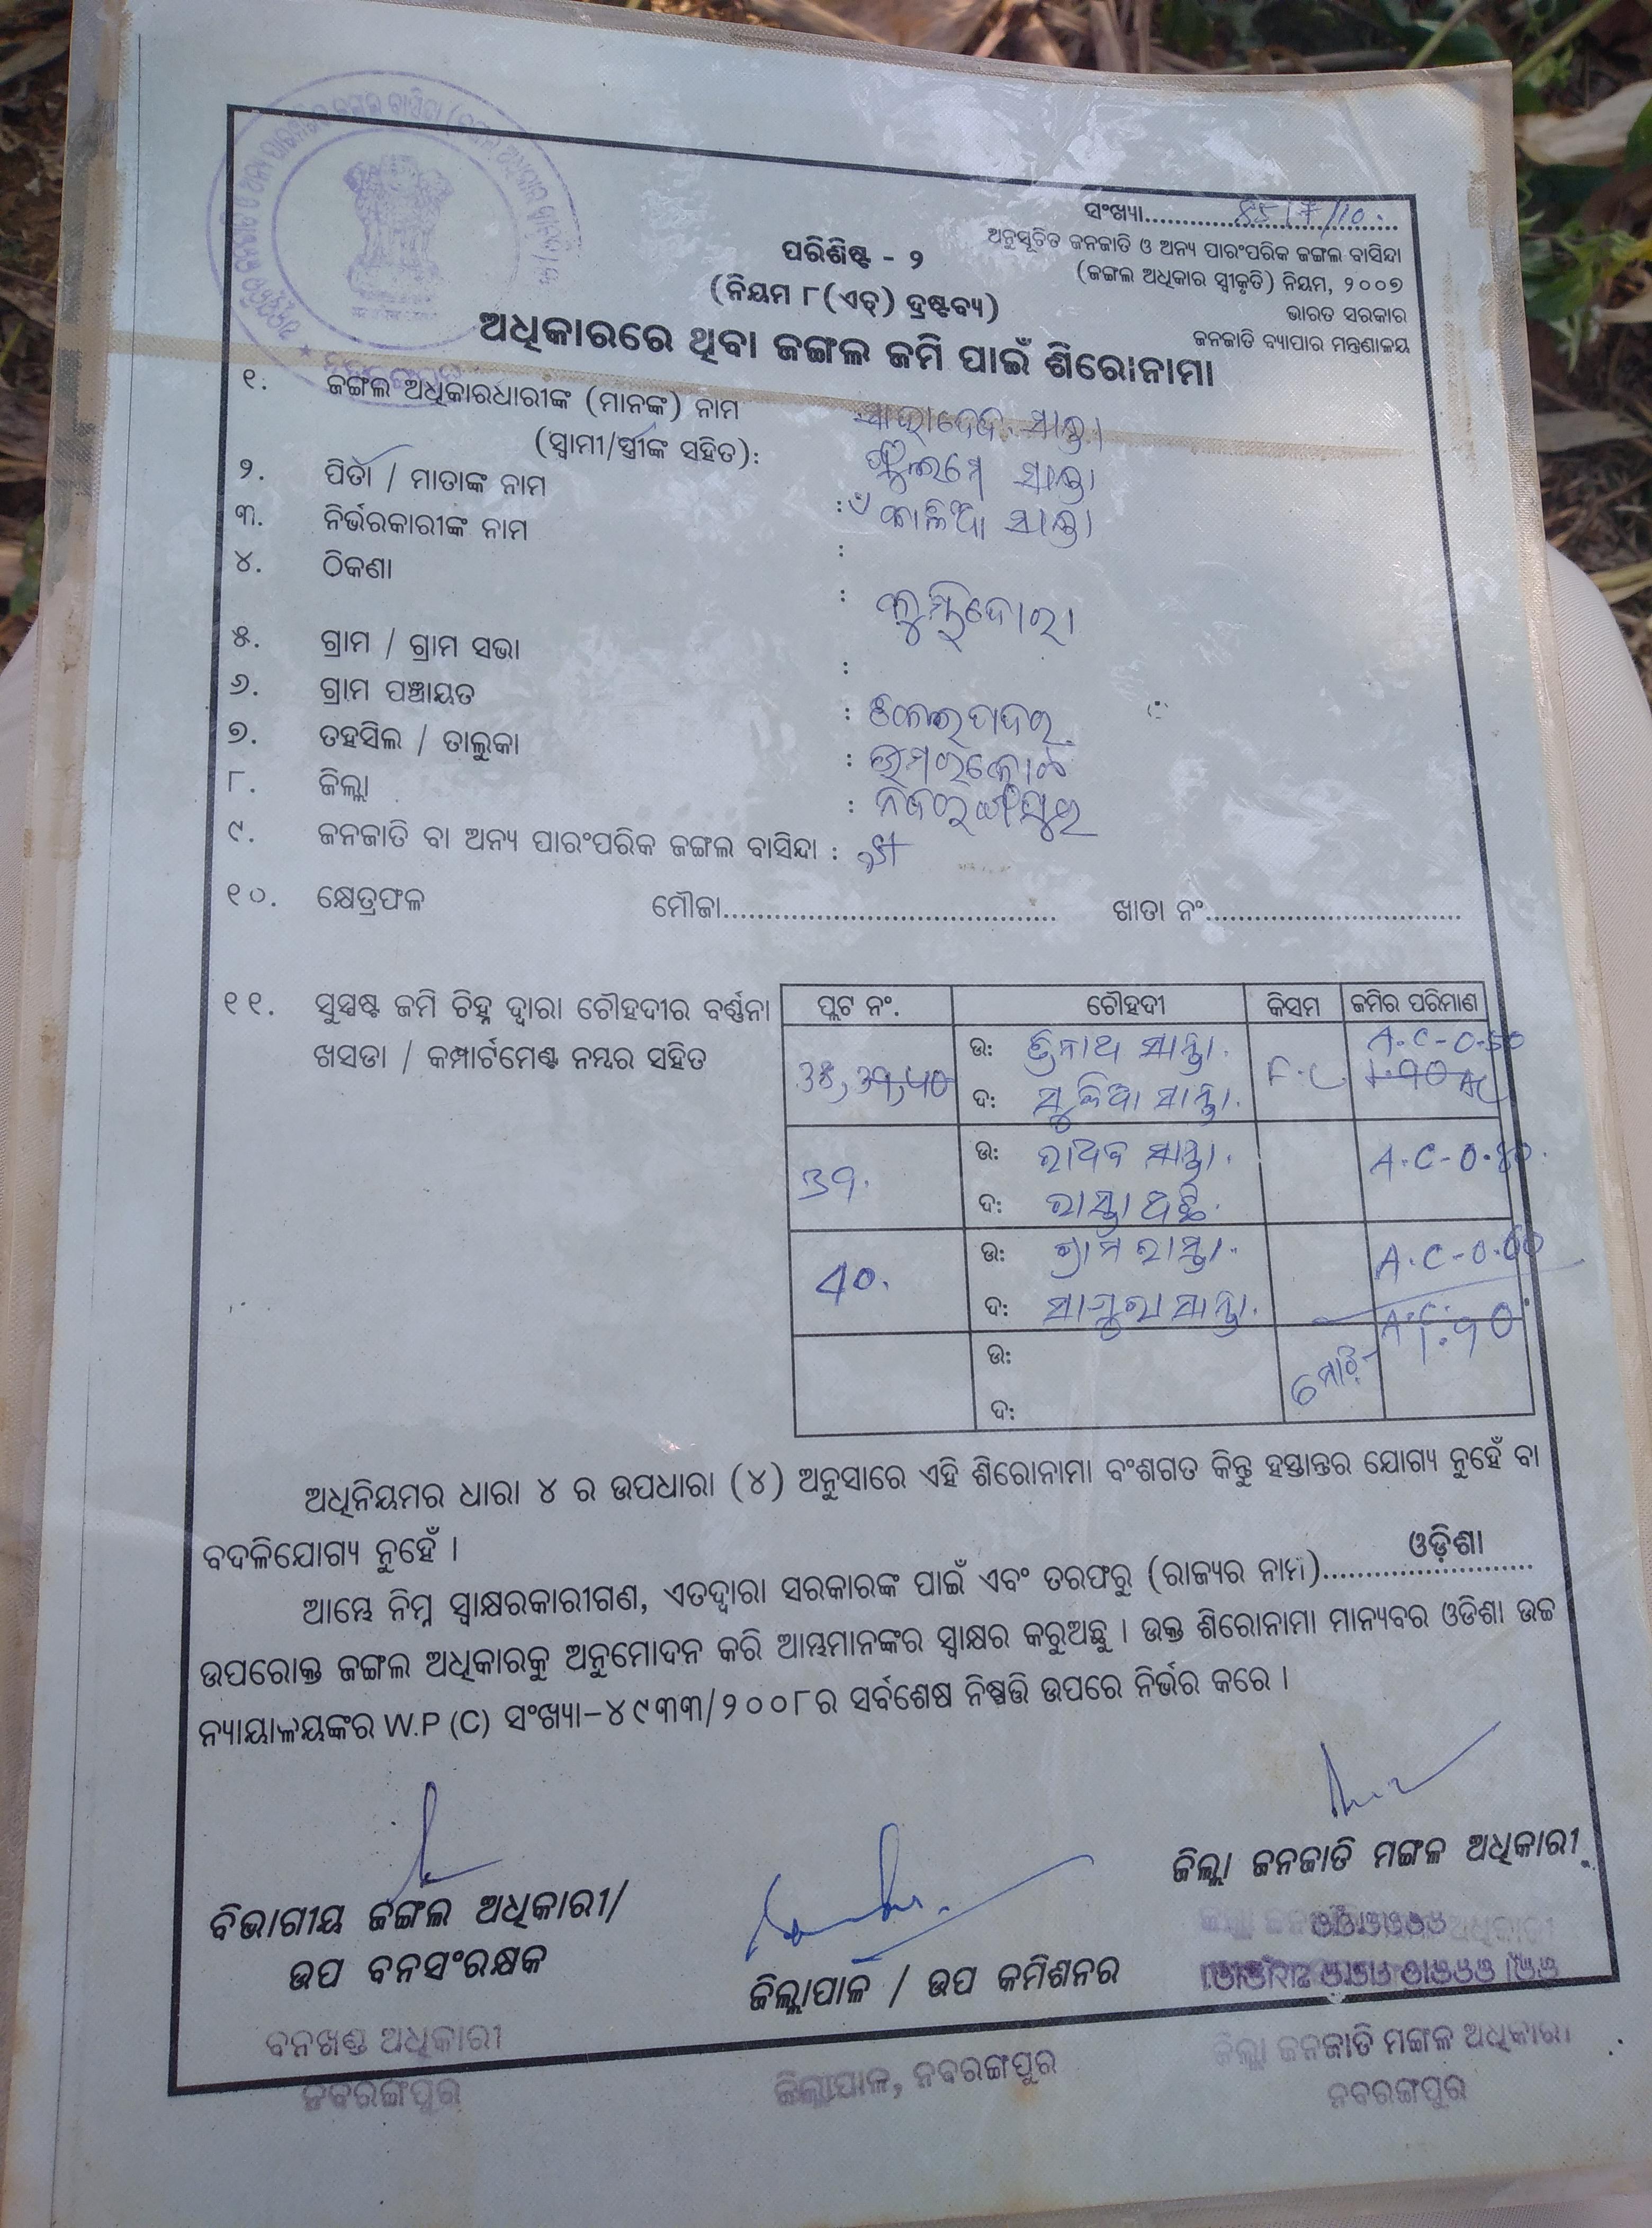 ସଂଖ୍ୟା
ଅନୁସୂଚିତ ଜନଜାତି ଓ ଅନ୍ୟ ପାରଂପରିକ ଜଙ୍ଗଲ ବାସିନ୍ଦା
(ଜଙ୍ଗଲ ଅଧିକାର ସ୍ୱୀକୃତି) ନିୟମ, ୨୦୦୭
ଭାରତ ସରକାର
ଜନଜାତି ବ୍ୟାପାର ମନ୍ତ୍ରଣାଳୟ
ପରିଶିଷ୍ଟ - ୨
(ନିୟମ ୮(ଏଚ୍) ଦ୍ରଷ୍ଟବ୍ୟ)
ଅଧିକାରରେ ଥିବା ଜଙ୍ଗଲ ଜମି ପାଇଁ ଶିରୋନାମା
୧. ଜଙ୍ଗଲ ଅଧିକାରଧାରୀଙ୍କ (ମାନଙ୍କ) ନାମ
(ସ୍ୱାମୀ/ସ୍ତ୍ରୀଙ୍କ ସହିତ): ସାନ୍ତା
୨. ପିତା / ମାତାଙ୍କ ନାମ : କାଳିଆ ସାନ୍ତା
୩. ନିର୍ଭରକାରୀଙ୍କ ନାମ :
୪. ଠିକଣା :
୫. ଗ୍ରାମ / ଗ୍ରାମ ସଭା :
୬. ଗ୍ରାମ ପଞ୍ଚାୟତ :
୭. ତହସିଲ / ତାଲୁକା : ଉମରକୋଟ
୮. ଜିଲ୍ଲା : ନବରଙ୍ଗପୁର
୯. ଜନଜାତି ବା ଅନ୍ୟ ପାରଂପରିକ ଜଙ୍ଗଲ ବାସିନ୍ଦା :
୧୦. କ୍ଷେତ୍ରଫଳ ମୌଜା ଖାତା ନଂ
୧୧. ସୁସ୍ପଷ୍ଟ ଜମି ଚିହ୍ନ ଦ୍ୱାରା ଚୌହଦୀର ବର୍ଣ୍ଣନା
ଖସଡା / କମ୍ପାର୍ଟମେଣ୍ଟ ନମ୍ବର ସହିତ
ପ୍ଲଟ ନଂ. ଚୌହଦୀ କିସମ ଜମିର ପରିମାଣ
ଉ: ସାନ୍ତା. A.C-0.50
ଦ: ସାନ୍ତା.
ଉ: ସାନ୍ତା. A.C-0.
ଦ: ରାସ୍ତା ଅଛି.
40. ଉ: ଗ୍ରାମ ରାସ୍ତା. A.C-0.60
ଦ: ସାନ୍ତା.
ଉ: ମୋଟ- A.C.
ଦ:
ଅଧିନିୟମର ଧାରା ୪ ର ଉପଧାରା (୪) ଅନୁସାରେ ଏହି ଶିରୋନାମା ବଂଶଗତ କିନ୍ତୁ ହସ୍ତାନ୍ତର ଯୋଗ୍ୟ ନୁହେଁ ବା
ବଦଳିଯୋଗ୍ୟ ନୁହେଁ ।
ଆମ୍ଭେ ନିମ୍ନ ସ୍ୱାକ୍ଷରକାରୀଗଣ, ଏତଦ୍ୱାରା ସରକାରଙ୍କ ପାଇଁ ଏବଂ ତରଫରୁ (ରାଜ୍ୟର ନାମ) ଓଡ଼ିଶା
ଉପରୋକ୍ତ ଜଙ୍ଗଲ ଅଧିକାରକୁ ଅନୁମୋଦନ କରି ଆମ୍ଭମାନଙ୍କର ସ୍ୱାକ୍ଷର କରୁଅଛୁ । ଉକ୍ତ ଶିରୋନାମା ମାନ୍ୟବର ଓଡିଶା ଉଚ୍ଚ
ନ୍ୟାୟାଳୟଙ୍କର W.P (C) ସଂଖ୍ୟା-୪୯୩୩/୨୦୦୮ର ସର୍ବଶେଷ ନିଷ୍ପତ୍ତି ଉପରେ ନିର୍ଭର କରେ ।
ବିଭାଗୀୟ ଜଙ୍ଗଲ ଅଧିକାରୀ/
ଉପ ବନସଂରକ୍ଷକ
ଜିଲ୍ଲାପାଳ / ଉପ କମିଶନର
ଜିଲ୍ଲା ଜନଜାତି ମଙ୍ଗଳ ଅଧିକାରୀ
ବନଖଣ୍ଡ ଅଧିକାରୀ
ନବରଙ୍ଗପୁର
ଜିଲ୍ଲାପାଳ, ନବରଙ୍ଗପୁର
ଜିଲ୍ଲା ଜନଜାତି ମଙ୍ଗଳ ଅଧିକାରୀ
ନବରଙ୍ଗପୁର